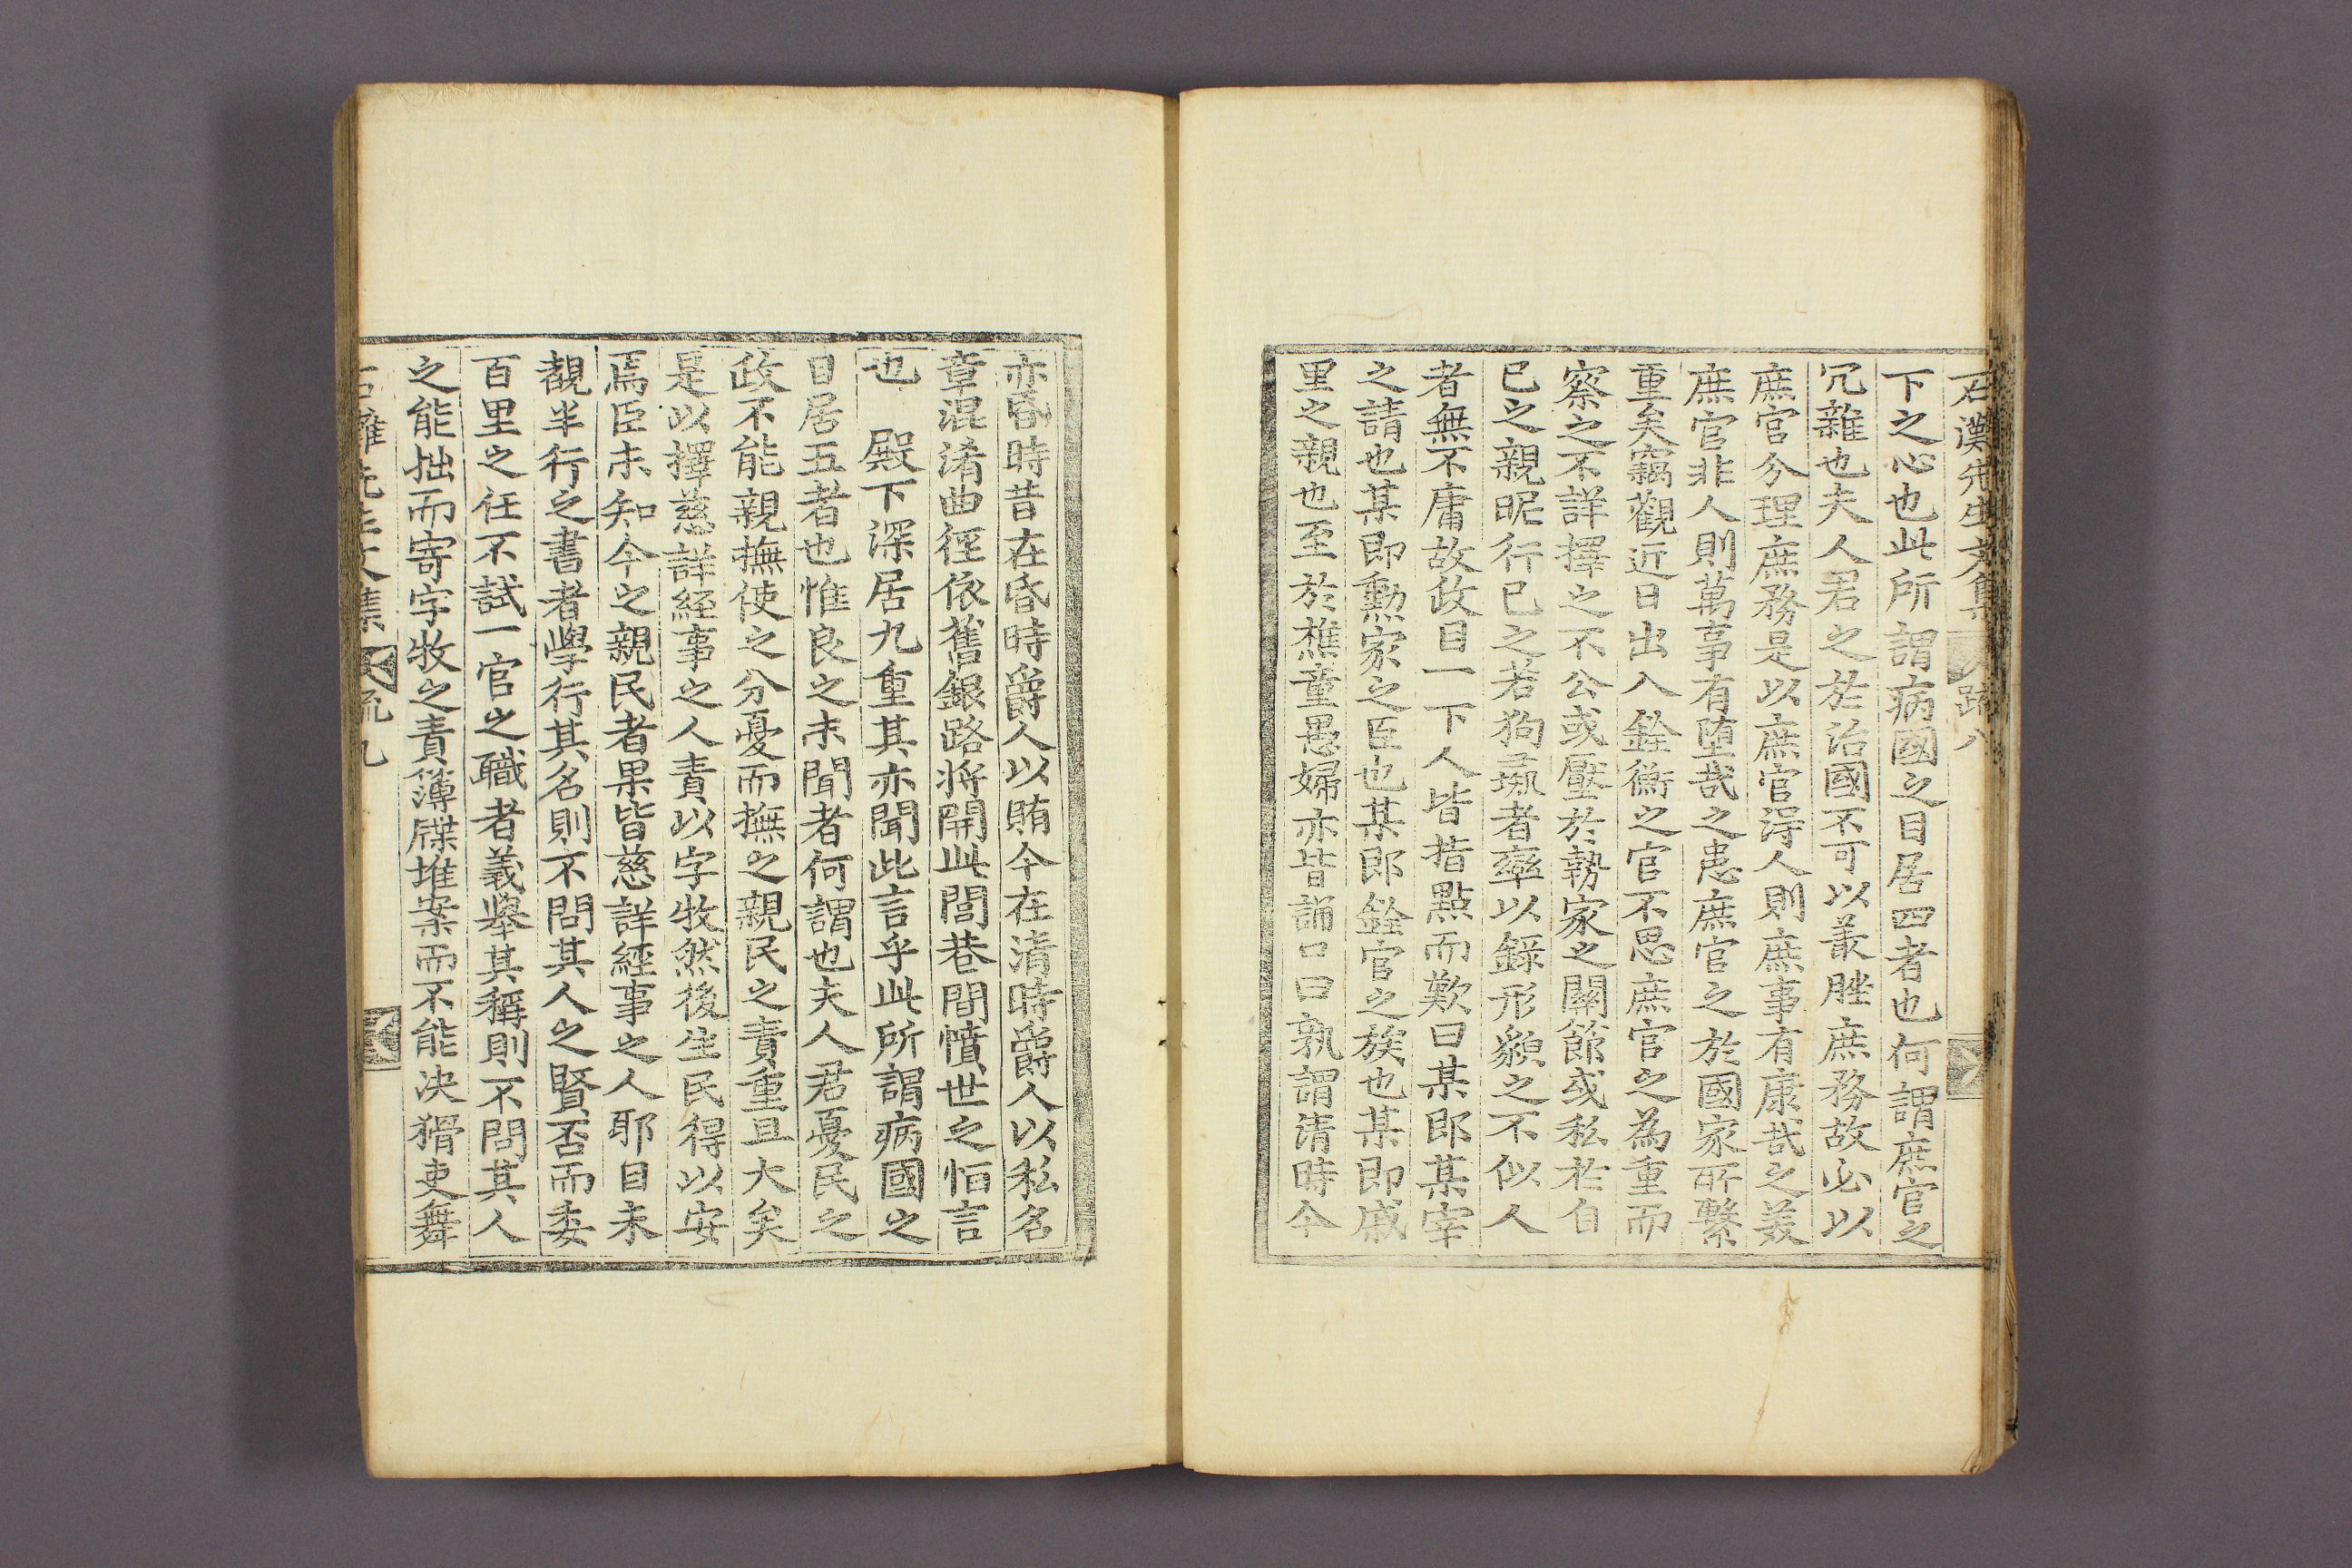 石灘先生文集 疏 八
下之心也此所謂病國之目居四者也何謂庶官之
冗雜也夫人君之於治國不可以叢脞庶務故必以
庶官分理庶務是以庶官得人則庶事有康哉之美
庶官非人則萬事有墮哉之患庶官之於國家所繫
重矣竊觀近日出入銓衡之官不思庶官之為重而
察之不詳擇之不公或壓於勢家之關節或私於自
己之親昵行己之若狗彘者率以錄形貌之不似人
者無不庸故政目一下人皆指點而歎曰某郎某宰
之請也某即勳家之臣也某郎銓官之族也某即戚
里之親也至於樵童愚婦亦皆誦口曰孰謂清時今
亦昏時昔在昏時爵人以賄今在清時爵人以私名
章混淆曲徑依舊銀路將開此閭巷間憤世之恒言
也 殿下深居九重其亦聞此言乎此所謂病國之
目居五者也惟良之未聞者何謂也夫人君憂民之
政不能親撫使之分憂而撫之親民之責重且大矣
是以擇慈詳經事之人責以字牧然後生民得以安
焉臣未知今之親民者果皆慈詳經事之人耶目未
覩半行之書者學行其名則不問其人之賢否而委
百里之任不試一官之職者義舉其稱則不問其人
之能拙而寄字牧之責簿牒堆案而不能決猾吏舞
石灘先生文集 疏 九